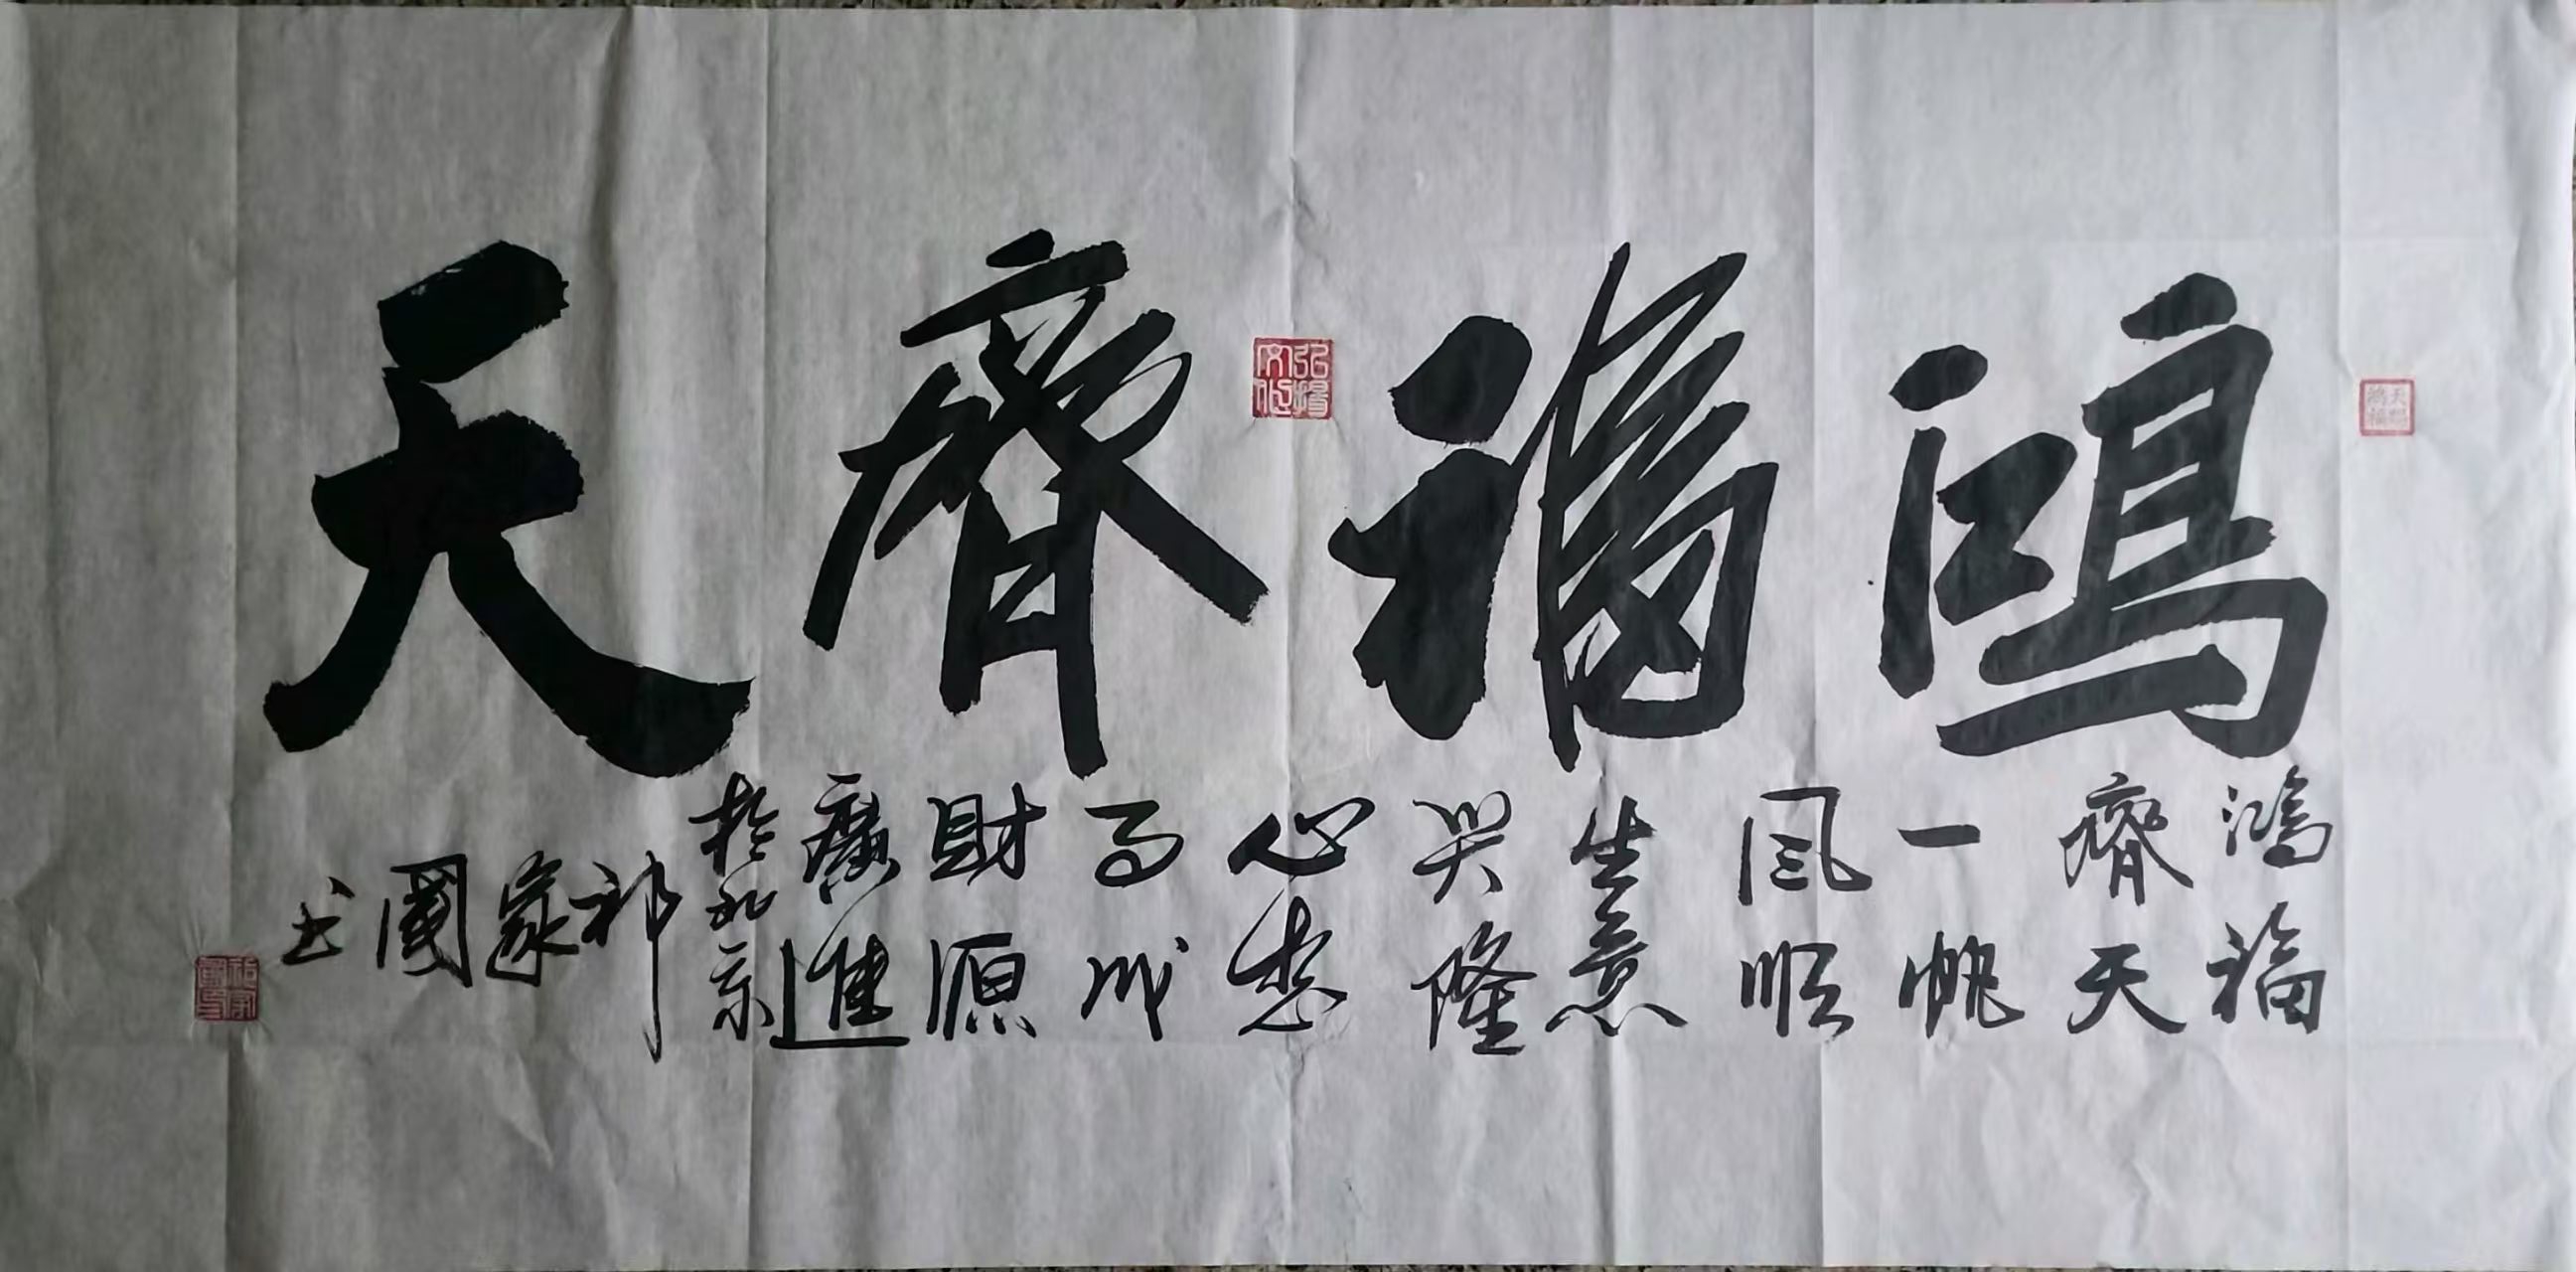 鴻福齊天
鴻福
齊天
一帆
風順
生意
興隆
心想
事成
財源
廣進
於北京
祁家國书
弘揚文化